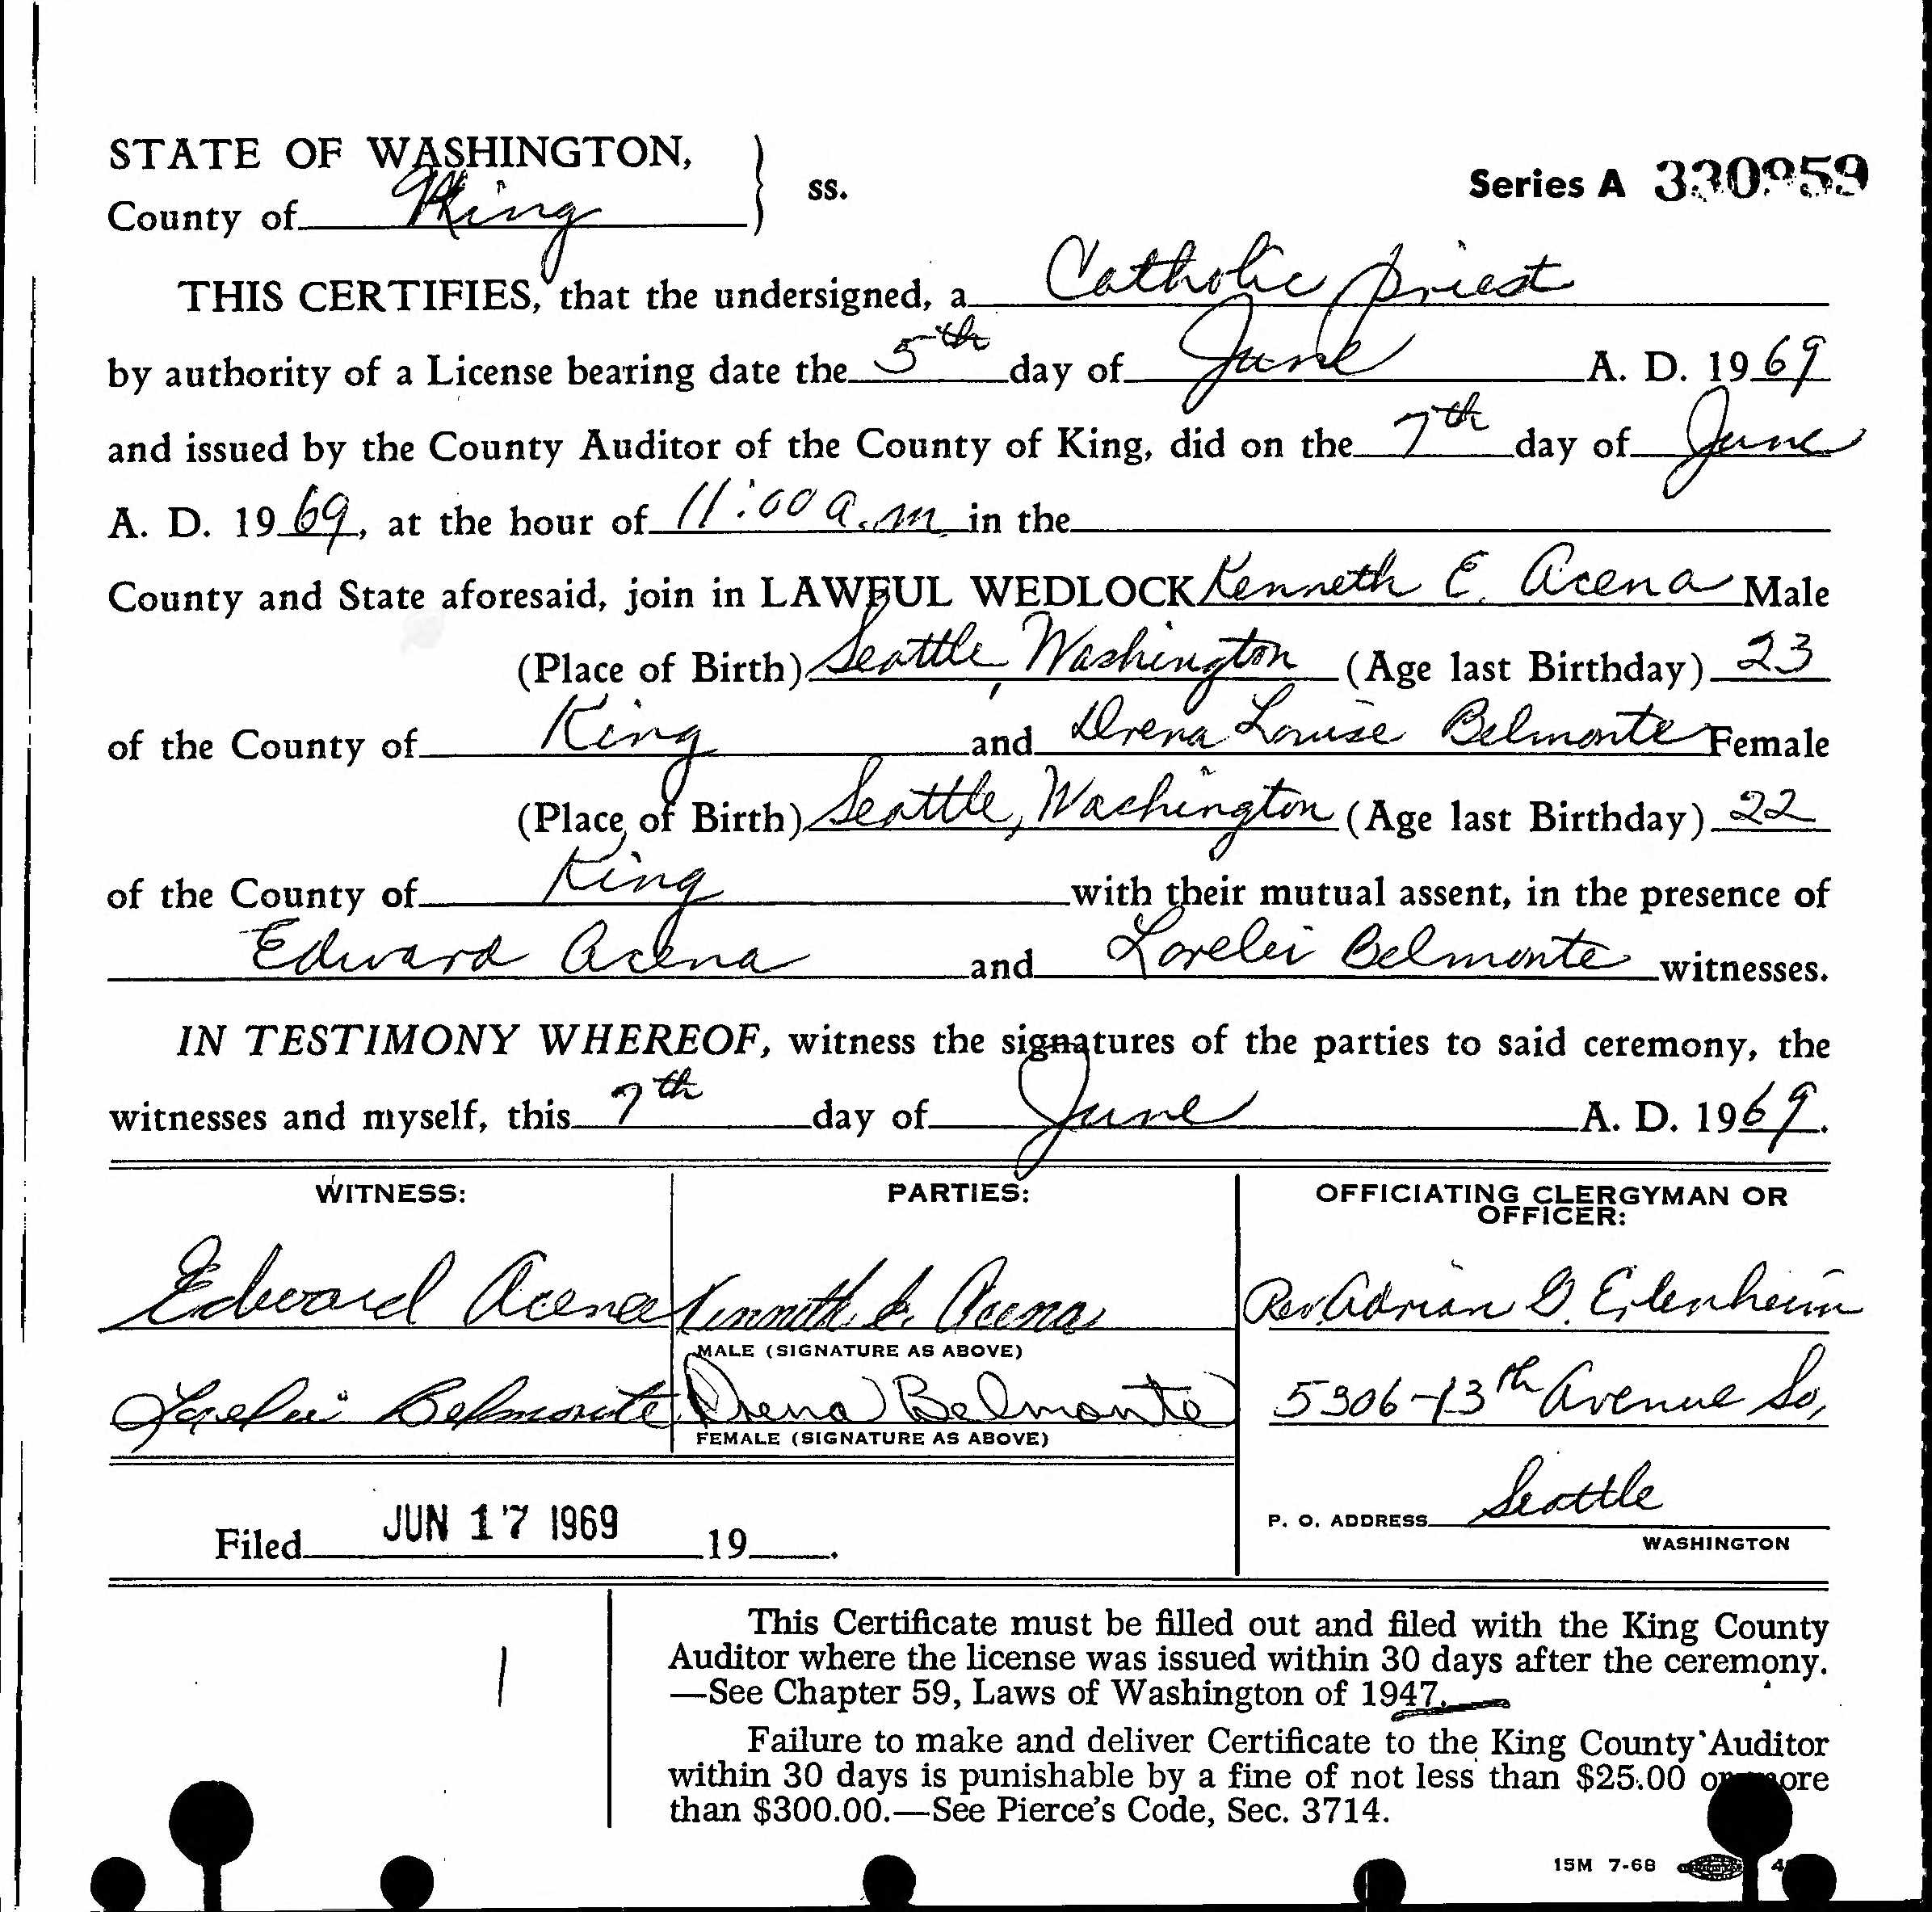 STATE OF WASHINGTON,
County of King ss.
Series A 330959
THIS CERTIFIES, that the undersigned, a Catholic priest
by authority of a License bearing date the 5th day of June A. D. 1969
and issued by the County Auditor of the County of King, did on the 7th day of June
A. D. 1969, at the hour of 11:00 a.m. in the
County and State aforesaid, join in LAWFUL WEDLOCK Kenneth E. Acena Male
(Place of Birth) Seattle, Washington (Age last Birthday) 23
of the County of King and Drena Louise Belmonte Female
(Place of Birth) Seattle, Washington (Age last Birthday) 22
of the County of King with their mutual assent, in the presence of
Edward Acena and Lorelei Belmonte witnesses.
IN TESTIMONY WHEREOF, witness the signatures of the parties to said ceremony, the
witnesses and myself, this 7th day of June A. D. 1969.
WITNESS: PARTIES: OFFICIATING CLERGYMAN OR
OFFICER:
Edward Acena Kenneth E. Acena Rev. Adrian G. Eilenheim
MALE (SIGNATURE AS ABOVE)
Lorelei Belmonte Drena Belmonte 5306-13th Avenue So,
FEMALE (SIGNATURE AS ABOVE)
P. O. ADDRESS Seattle
WASHINGTON
Filed JUN 17 1969 19 .
This Certificate must be filled out and filed with the King County
Auditor where the license was issued within 30 days after the ceremony.
—See Chapter 59, Laws of Washington of 1947.
Failure to make and deliver Certificate to the King County Auditor
within 30 days is punishable by a fine of not less than $25.00 or more
than $300.00.—See Pierce's Code, Sec. 3714.
15M 7-68